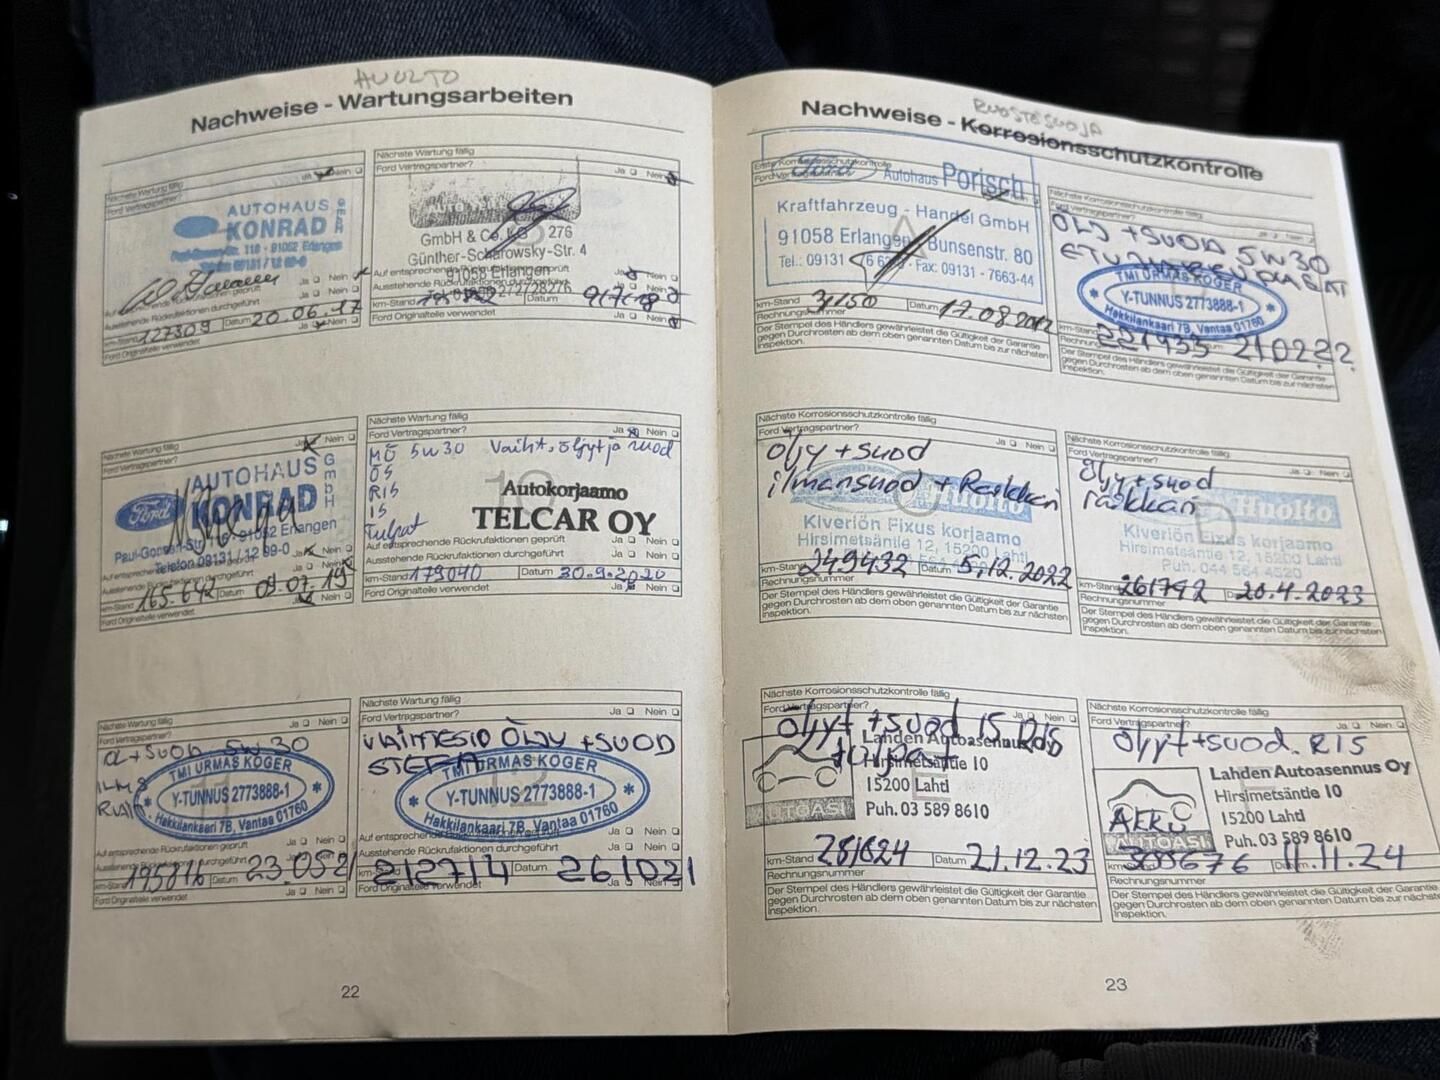 HUOLTO
Nachweise - Wartungsarbeiten
Nächste Wartung fällig
Ford Vertragspartner? Ja Nein
AUTOHAUS
KONRAD
GmbH
Paul-Gossen-Str. 116 · 91052 Erlangen
09131 / 12 99-0
Ja Nein
Ausstehende Rückrufaktionen durchgeführt
km-Stand 127309 Datum 20.06.17
Ford Originalteile verwendet Ja Nein
Nächste Wartung fällig
Ford Vertragspartner? Ja Nein
GmbH & Co. KG 276
Günther-Scharowsky-Str. 4
91058 Erlangen
Auf entsprechende Rückrufaktionen geprüft Ja Nein
Ausstehende Rückrufaktionen durchgeführt Ja Nein
km-Stand Datum 9/7/18
Ford Originalteile verwendet Nein
Nächste Wartung fällig
Ford Vertragspartner? Ja Nein
AUTOHAUS
Ford KONRAD
GmbH
Paul-Gossen-Str. 116 · 91052 Erlangen
Telefon 09131 / 12 99-0
Ausstehende Rückrufaktionen durchgeführt Ja Nein
km-Stand 165.642 Datum 09.07.19
Ford Originalteile verwendet Ja Nein
Nächste Wartung fällig
Ford Vertragspartner? Ja Nein
MÖ 5W30 Vaiht. öljyt ja suod
ÖS
RIS
IS
Tulpat
10
Autokorjaamo
TELCAR OY
Auf entsprechende Rückrufaktionen geprüft Ja Nein
Ausstehende Rückrufaktionen durchgeführt Ja Nein
km-Stand 179040 Datum 30.9.2020
Ford Originalteile verwendet Ja Nein
Nächste Wartung fällig
Ford Vertragspartner? Ja Nein
+SUOD 5W30
11
TMI URMAS KOGER
* Y-TUNNUS 2773888-1 *
Hakkilankaari 7B, Vantaa 01760
Auf entsprechende Rückrufaktionen geprüft Ja Nein
Ausstehende Rückrufaktionen durchgeführt Ja Nein
km-Stand 195816 Datum 230521
Ford Originalteile verwendet Ja Nein
Nächste Wartung fällig
Ford Vertragspartner? Ja Nein
ÖLJY +SUOD
12
TMI URMAS KOGER
* Y-TUNNUS 2773888-1 *
Hakkilankaari 7B, Vantaa 01760
Auf entsprechende Rückrufaktionen geprüft Ja Nein
Ausstehende Rückrufaktionen durchgeführt Ja Nein
km-Stand 212714 Datum 261021
Ford Originalteile verwendet Ja Nein
22
RUOSTESUOJA
Nachweise - Korrosionsschutzkontrolle
Erste Korrosionsschutzkontrolle
Ford Vertragspartner? Ja Nein
Ford Autohaus Porisch
A
Kraftfahrzeug - Handel GmbH
91058 Erlangen · Bunsenstr. 80
Fax: 09131 - 7663-44
km-Stand 3150 Datum 17.08.2012
Rechnungsnummer
Der Stempel des Händlers gewährleistet die Gültigkeit der Garantie
gegen Durchrosten ab dem oben genannten Datum bis zur nächsten
Inspektion.
Nächste Korrosionsschutzkontrolle fällig
Ford Vertragspartner? Ja Nein
ÖLJ +SUOD 5W30
TMI URMAS KOGER
* Y-TUNNUS 2773888-1 *
Hakkilankaari 7B, Vantaa 01760
km-Stand 221933 Datum 210222
Rechnungsnummer
Der Stempel des Händlers gewährleistet die Gültigkeit der Garantie
gegen Durchrosten ab dem oben genannten Datum bis zur nächsten
Inspektion.
Nächste Korrosionsschutzkontrolle fällig
Ford Vertragspartner? Ja Nein
Öljy +suod
ilmansuod + Raikkari
C
Huolto
Kiveriön Fixus korjaamo
Hirsimetsäntie 12, 15200 Lahti
km-Stand 249432 Datum 5.12.2022
Rechnungsnummer
Der Stempel des Händlers gewährleistet die Gültigkeit der Garantie
gegen Durchrosten ab dem oben genannten Datum bis zur nächsten
Inspektion.
Nächste Korrosionsschutzkontrolle fällig
Ja Nein
Öljy +suod
raikkari
D
Huolto
Kiveriön Fixus korjaamo
Hirsimetsäntie 12, 15200 Lahti
Puh. 044 564 4520
km-Stand 261792 Datum 20.4.2023
Rechnungsnummer
Der Stempel des Händlers gewährleistet die Gültigkeit der Garantie
gegen Durchrosten ab dem oben genannten Datum bis zur nächsten
Inspektion.
Nächste Korrosionsschutzkontrolle fällig
Ford Vertragspartner? Ja Nein
Öljyt +suod IS
+tulpat
E
Lahden Autoasennus Oy
Hirsimetsäntie 10
15200 Lahti
AUTOASI Puh. 03 589 8610
km-Stand 281824 Datum 21.12.23
Rechnungsnummer
Der Stempel des Händlers gewährleistet die Gültigkeit der Garantie
gegen Durchrosten ab dem oben genannten Datum bis zur nächsten
Inspektion.
Nächste Korrosionsschutzkontrolle fällig
Ford Vertragspartner? Ja Nein
Öljyt+suod. RIS
Lahden Autoasennus Oy
Hirsimetsäntie 10
15200 Lahti
AUTOASI Puh. 03 589 8610
km-Stand 303676 Datum 11.11.24
Rechnungsnummer
Der Stempel des Händlers gewährleistet die Gültigkeit der Garantie
gegen Durchrosten ab dem oben genannten Datum bis zur nächsten
Inspektion.
23